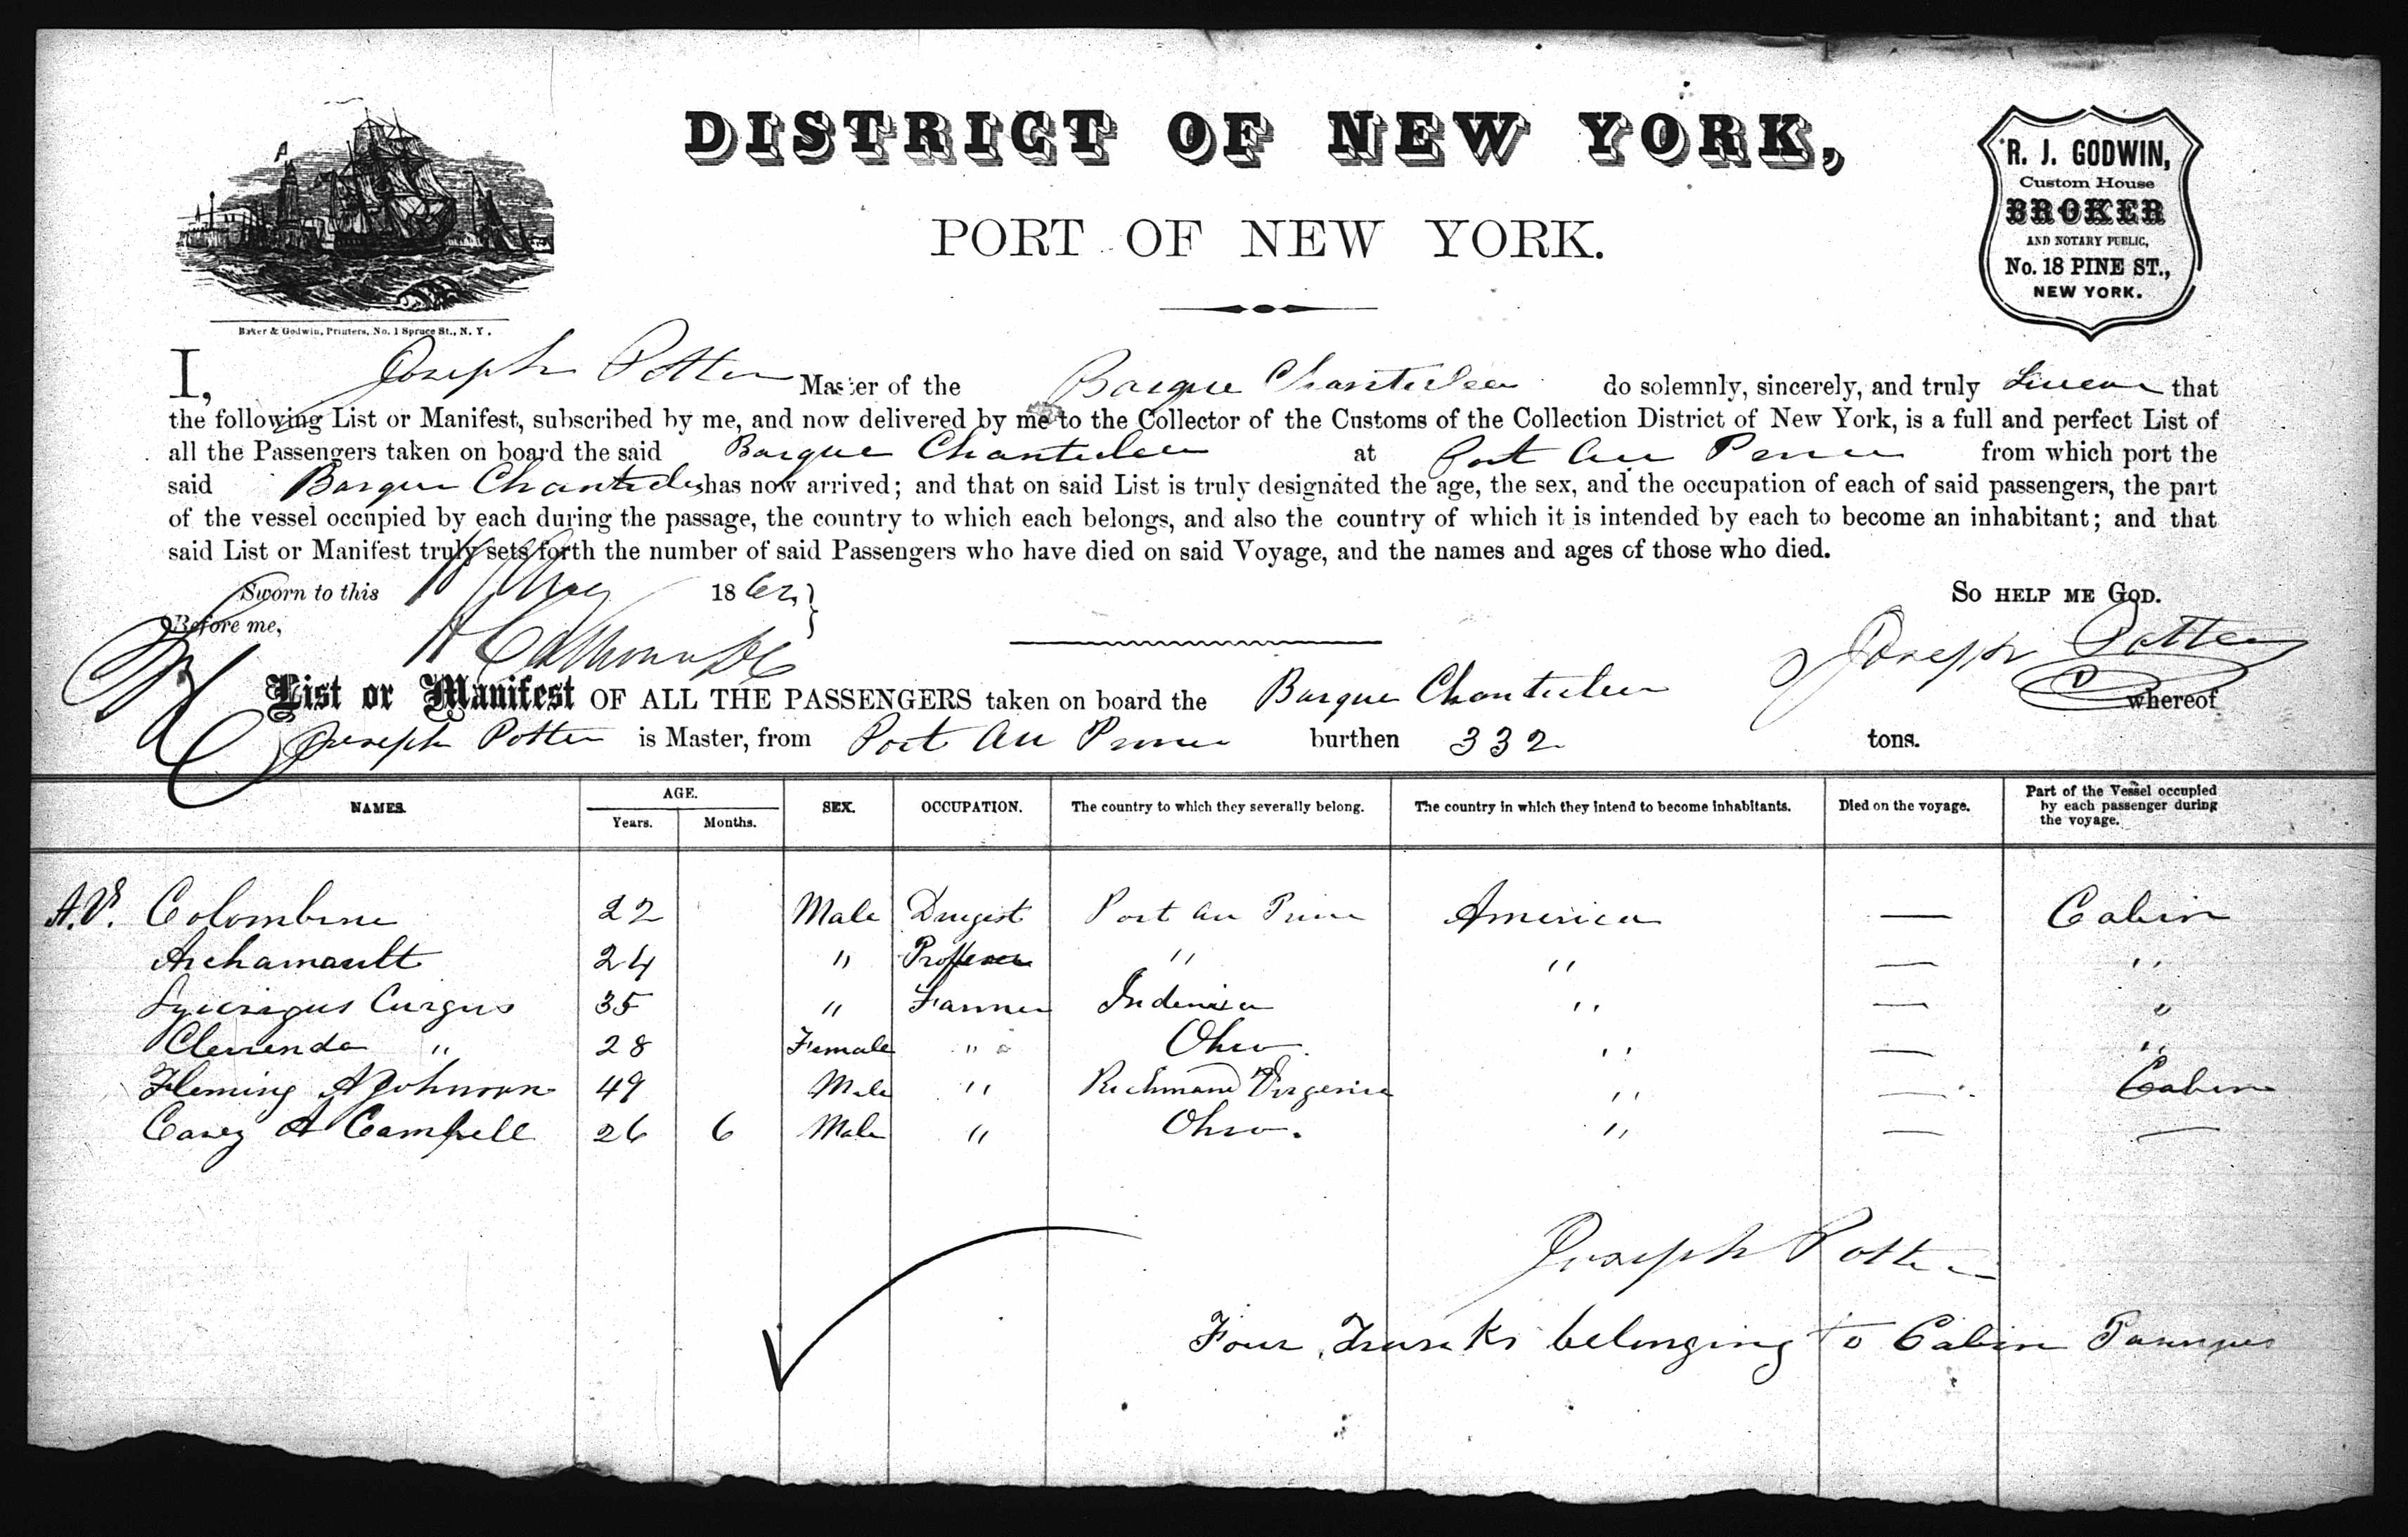 DISTRICT OF NEW YORK,
PORT OF NEW YORK.
R. J. GODWIN,
Custom House
BROKER
AND NOTARY PUBLIC,
No. 18 PINE ST.,
NEW YORK.
Baker & Godwin, Printers, No. 1 Spruce St., N. Y.
I, Joseph Potter Master of the Barque Chanticleer do solemnly, sincerely, and truly swear that
the following List or Manifest, subscribed by me, and now delivered by me to the Collector of the Customs of the Collection District of New York, is a full and perfect List of
all the Passengers taken on board the said Barque Chanticleer at Port Au Prince from which port the
said Barque Chanticleer has now arrived; and that on said List is truly designated the age, the sex, and the occupation of each of said passengers, the part
of the vessel occupied by each during the passage, the country to which each belongs, and also the country of which it is intended by each to become an inhabitant; and that
said List or Manifest truly sets forth the number of said Passengers who have died on said Voyage, and the names and ages of those who died.
Sworn to this Aug 1862 SO HELP ME GOD.
Before me, Joseph Potter
List or Manifest OF ALL THE PASSENGERS taken on board the Barque Chanticleer whereof
Joseph Potter is Master, from Port Au Prince burthen 332 tons.
NAMES. AGE. Years. Months. SEX. OCCUPATION. The country to which they severally belong. The country in which they intend to become inhabitants. Died on the voyage. Part of the Vessel occupied by each passenger during the voyage.
Colombine 22 Male Drugist Port au Prince America — Cabin
Archamault 24 " Proffesser " " — "
Curgus 35 " Farmer " — "
" 28 Female " Ohio " — "
Fleming A Johnson 49 Male " Richmond Virginia " — Cabin
Casey A Campell 26 6 Male " Ohio. " — —
Joseph Potter
Four Trunks belonging to Cabin Passengers